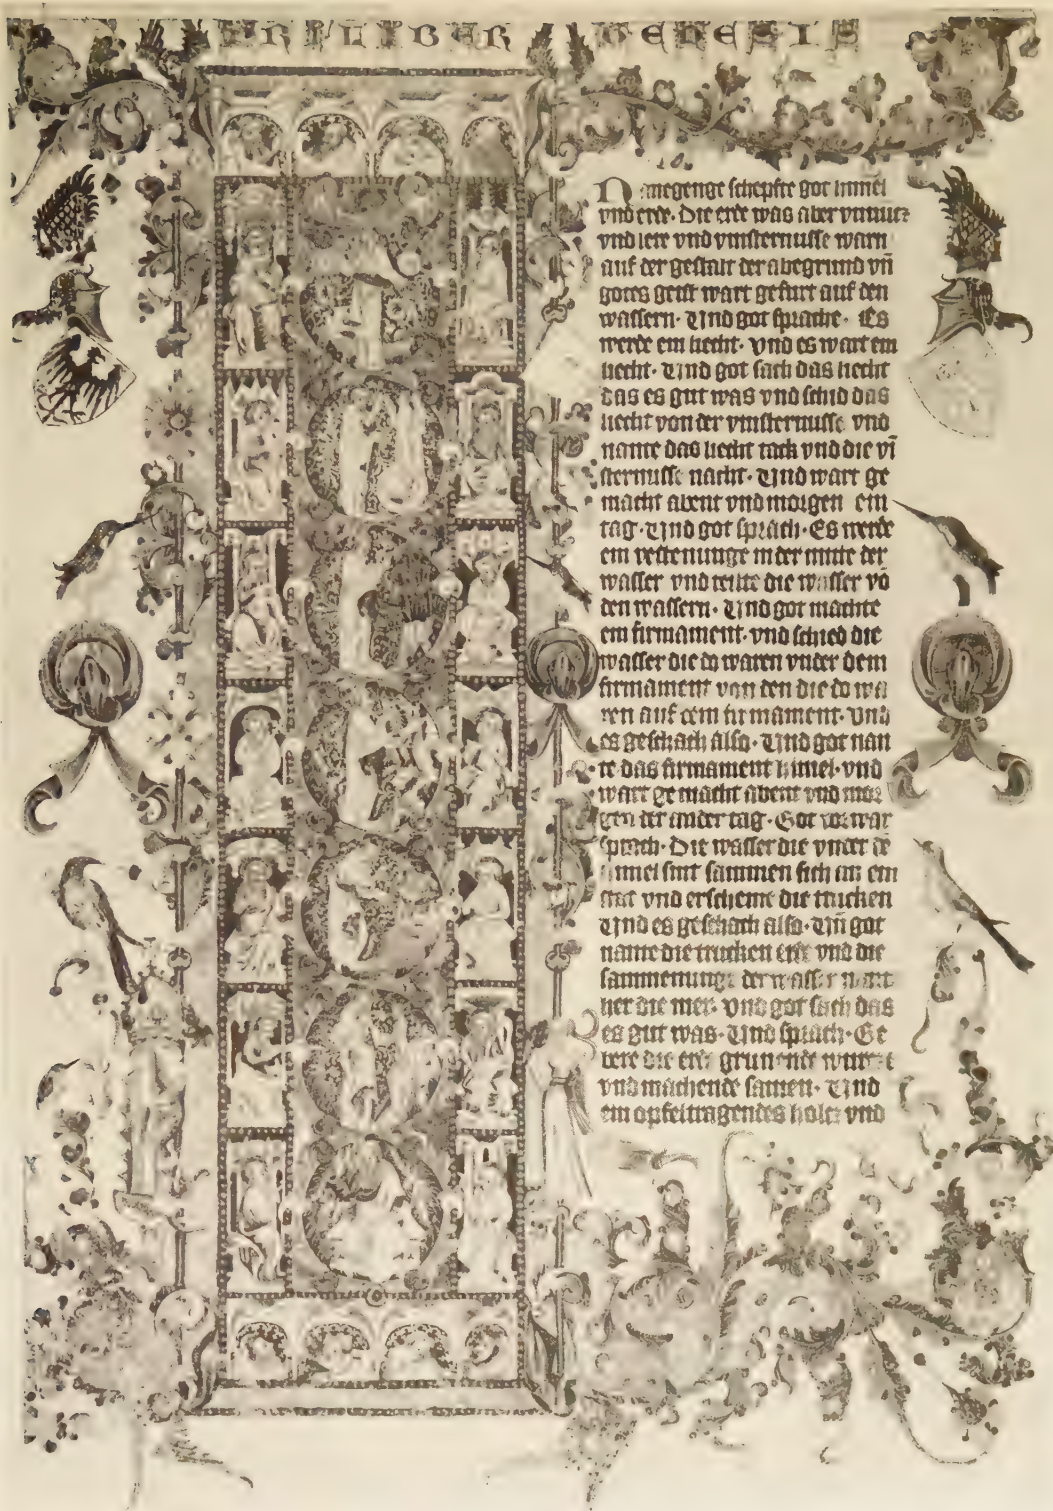 PRI LIBER GENESIS
N anegenge schepfte got himel
vnd erde. Die erde was aber vnnutz
vnd lere vnd vinsternusse warn
auf der gestalt der abegrund vn̄
gotes geist wart gefurt auf den
wassern. Und got sprache. Es
werde ein liecht. vnd es wart ein
liecht. Und got sach das liecht
das es gut was vnd schid das
liecht von der vinsternusse vnd
nante das liecht tack vnd die vī
sternusse nacht. Und wart ge
macht abent vnd morgen ein
tag. Und got sprach. Es werde
ein vestenunge in der mitte der
wasser vnd teilte die wasser vō
den wassern. Und got machte
ein firmament. vnd schied die
wasser die do waren vnder dem
firmament von den die do wa
ren auf dem firmament. vnd
es geschach also. Und got nan
te das firmament himel. vnd
wart gemacht abent vnd mor
gen der ander tag. Got vorwar
sprach. Die wasser die vnder dē
himel sint sammen sich in ein
stat vnd erscheine die trucken
Und es geschach also. Un̄ got
nante die trucken erde vnd die
sammenunge der wasser nant
her die mer. vnd got sach das
es gut was. Und sprach. Ge
bere die erde grunende wurtze
vnd machende samen. Und
ein opfeltragendes holtz vnd